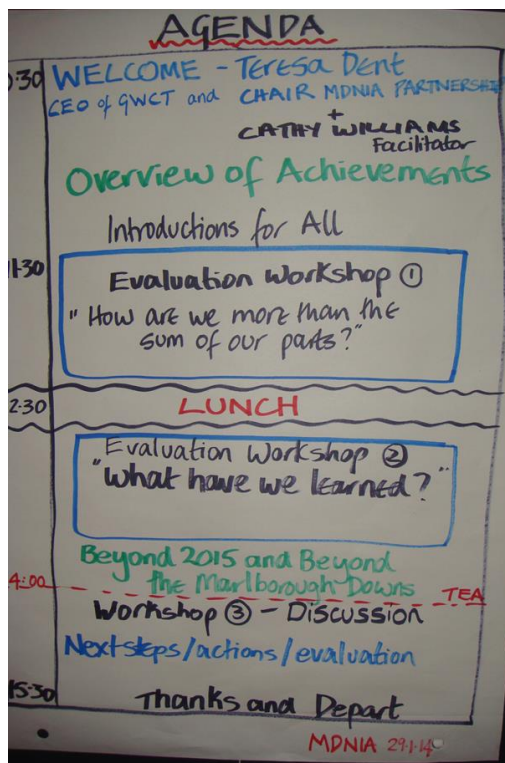 AGENDA
:30 WELCOME - TERESA DENT
CEO of GWCT and CHAIR MDNIA PARTNERSHIP
+
CATHY WILLIAMS
Facilitator
Overview of Achievements
Introductions for All
11:30
Evaluation Workshop ①
"How are we more than the
sum of our parts?"
2:30 LUNCH
Evaluation Workshop ②
"What have we learned?"
Beyond 2015 and Beyond
the Marlborough Downs
4:00 TEA
Workshop ③ - DISCUSSION
Next steps/actions/evaluation
15:30
Thanks and Depart
MDNIA 29.1.14